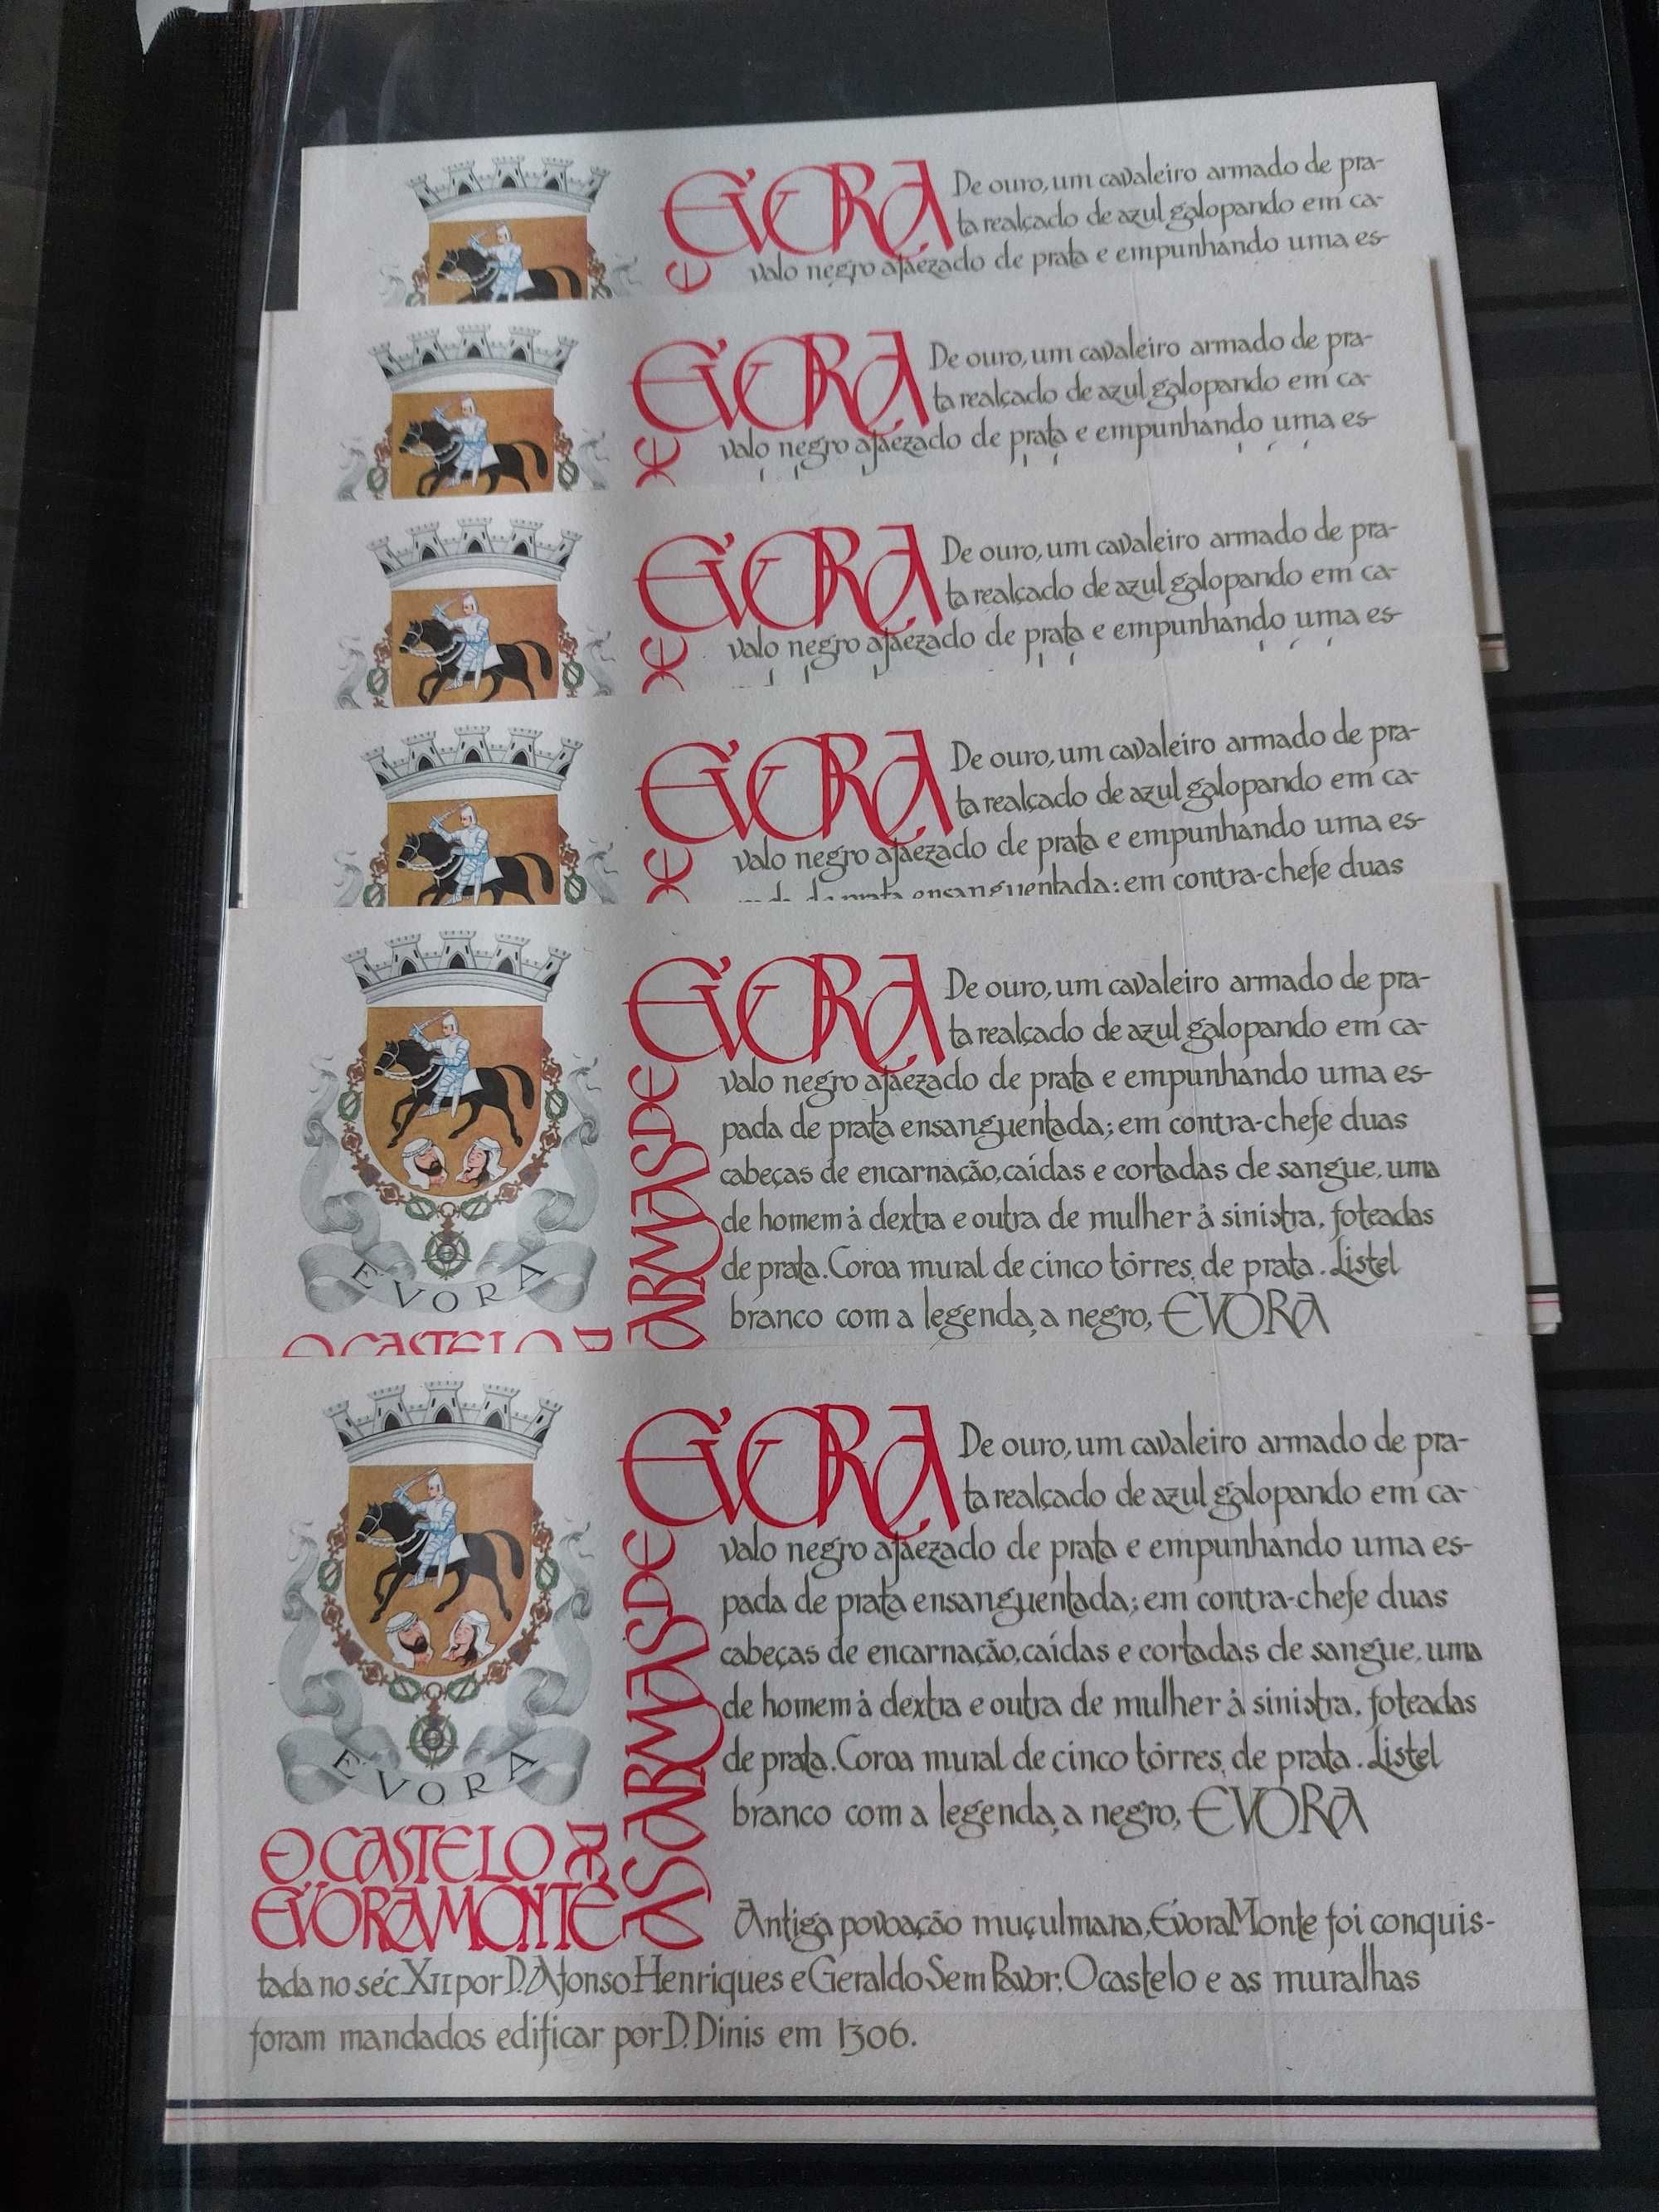 ÉVORA De ouro, um cavaleiro armado de pra-
ta realçado de azul galopando em ca-
valo negro ajaezado de prata e empunhando uma es-
ÉVORA De ouro, um cavaleiro armado de pra-
ta realçado de azul galopando em ca-
DE valo negro ajaezado de prata e empunhando uma es-
ÉVORA De ouro, um cavaleiro armado de pra-
ta realçado de azul galopando em ca-
DE valo negro ajaezado de prata e empunhando uma es-
ÉVORA De ouro, um cavaleiro armado de pra-
ta realçado de azul galopando em ca-
DE valo negro ajaezado de prata e empunhando uma es-
pada de prata ensanguentada; em contra-chefe duas
ÉVORA De ouro, um cavaleiro armado de pra-
ta realçado de azul galopando em ca-
valo negro ajaezado de prata e empunhando uma es-
pada de prata ensanguentada; em contra-chefe duas
cabeças de encarnação, caídas e cortadas de sangue, uma
de homem à dextra e outra de mulher à sinistra, foteadas
de prata. Coroa mural de cinco tôrres, de prata. Listel
branco com a legenda, a negro, EVORA
ARMAS DE
EVORA
O CASTELO D
ÉVORA De ouro, um cavaleiro armado de pra-
ta realçado de azul galopando em ca-
valo negro ajaezado de prata e empunhando uma es-
pada de prata ensanguentada; em contra-chefe duas
cabeças de encarnação, caídas e cortadas de sangue, uma
de homem à dextra e outra de mulher à sinistra, foteadas
de prata. Coroa mural de cinco tôrres, de prata. Listel
branco com a legenda, a negro, EVORA
AS ARMAS DE
EVORA
O CASTELO DE
ÉVORAMONTE
Antiga povoação muçulmana, ÉvoraMonte foi conquis-
tada no séc. XII por D. Afonso Henriques e Geraldo Sem Pavor. O castelo e as muralhas
foram mandados edificar por D. Dinis em 1306.